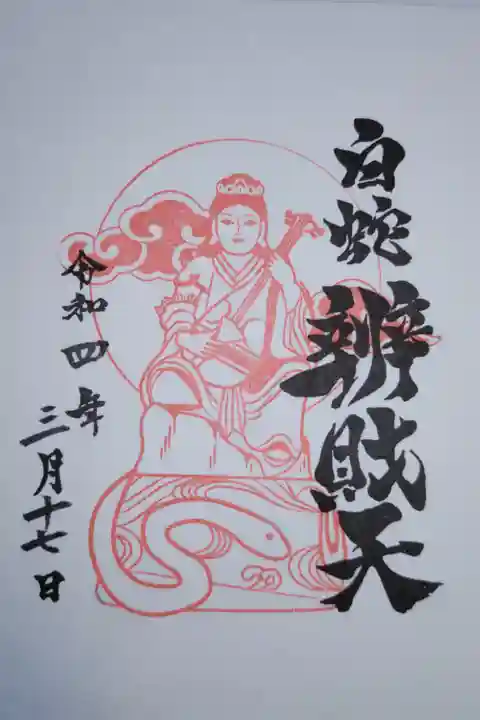 白蛇辨財天
令和四年
三月十七日